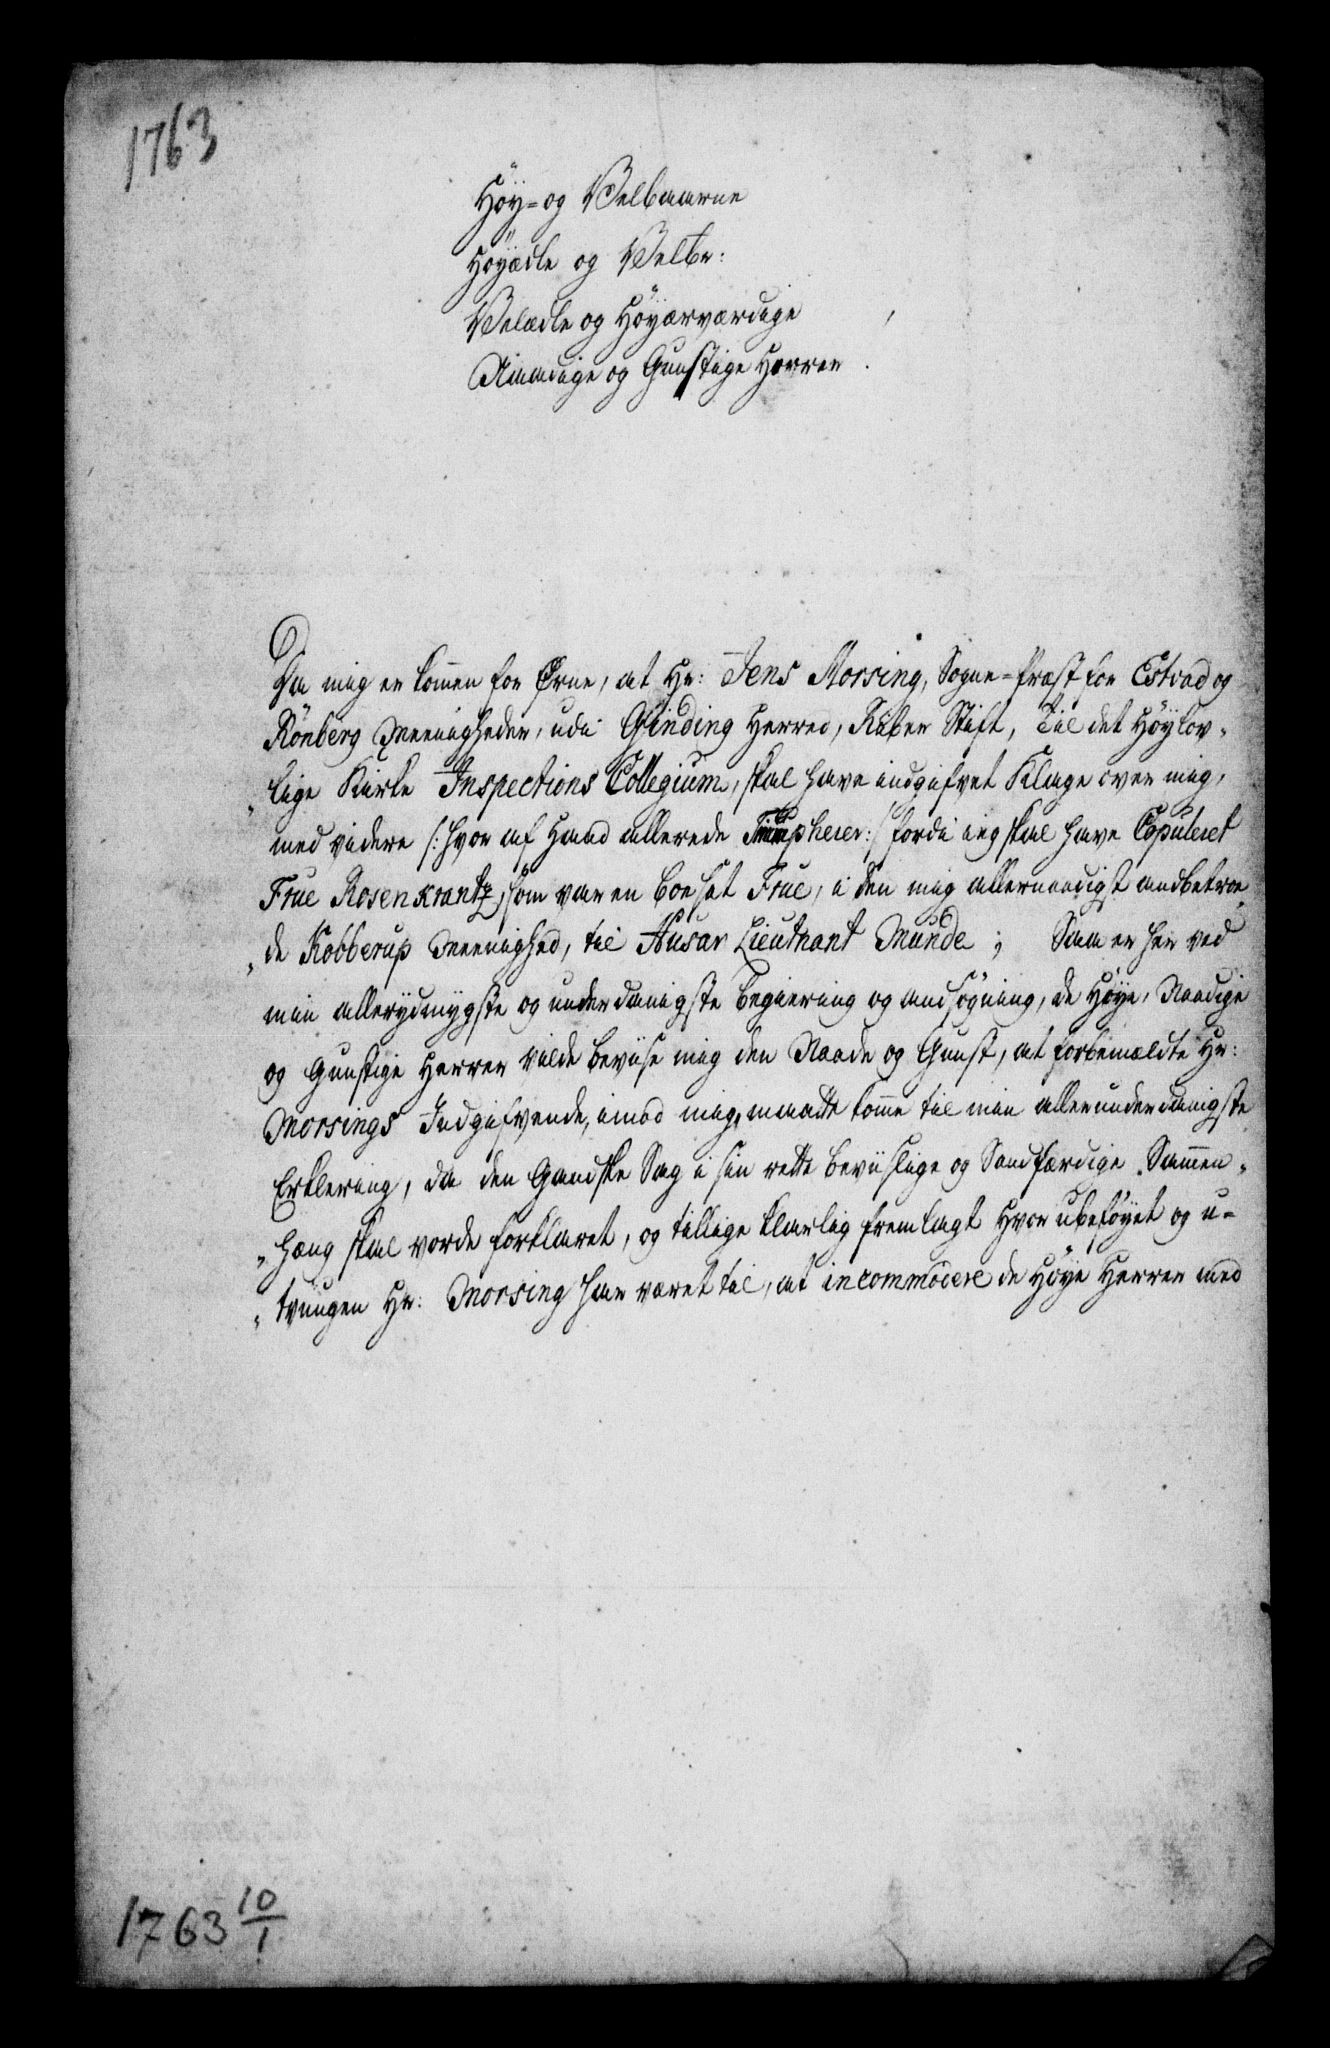 1763
Høy- og Velbaarne
Høyædle og Velbr:
Velædle og Høyærværdige
Naadige og Gunstige Herrer
Da mig er kom̅en for Ørne, at Hr: Jens Morsing, Sogne-Præst for Estvad og
Rönberg Meenigheder, udi Ginding Herred, Riber Stift, Til det Høylov„
„lige Kirke Inspections Collegium, skal have indgifvet Klage over mig,
med videre /: hvor af Hand allerede Triumpherer :/ fordi ieg skal have Copuleret
Frue Rosenkrantz, som var en boesat Frue, i den mig allernaadigst andbetroe„
„de Kobberup Meenighed, til Husar Lieutnant Munde; Saa er her ved
min allerydmygste og underdanigste begiering og andsøgning, de Høye, Naadige
og Gunstige Herrer vilde beviise mig den Naade og Gunst, at forbemældte Hr:
Morsings Indgifvende, imod mig, maatte kom̅e til min allerunderdanigste
Erklering, da den Gandske Sag i sin rette beviislige og Sandfærdige Sam̅en„
„hæng skal vorde forklaret, og tillige klarlig fremlagt hvor ubeføyet og u-
„tvungen Hr: Morsing har været til, at incommodere de Høye Herrer med
1763 10/1